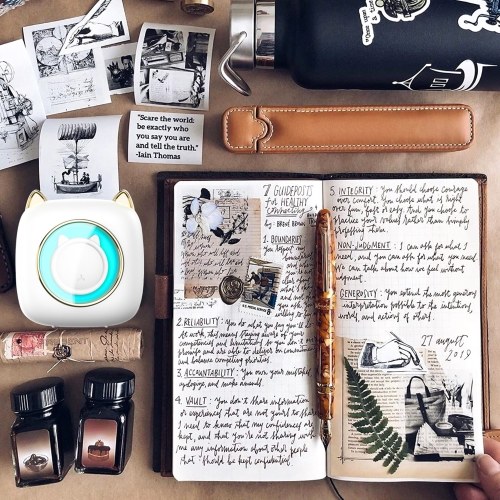 "Scare the world:
be exactly who
you say you are
and tell the truth."
-Iain Thomas
7 GUIDEPOSTS
for HEALTHY
by: Brené Brown
1. BOUNDARIES
You respect my
2. RELIABILITY: You do what you say you'll do.
At work, this means staying aware of your
competencies and limitations so you don't over
promise and are able to deliver on commitments
and balance competing priorities.
3. ACCOUNTABILITY: You own your mistakes,
apologize, and make amends.
4. VAULT: You don't share information
or experiences that are not yours to share.
I need to know that my confidences are
kept, and that you're not sharing with
me any information about other people
that should be kept confidential.
5. INTEGRITY: You should choose courage
over comfort. You choose what is right
over fun, fast, & easy. And you choose to
practice your values rather than simply
professing them.
NON-JUDGMENT: I can ask for what I
need, and you can ask for what you need.
We can talk about how we feel without
judgment.
GENEROSITY: You extend the most generous
interpretation possible to the intentions,
words, and actions of others.
27 august
2019